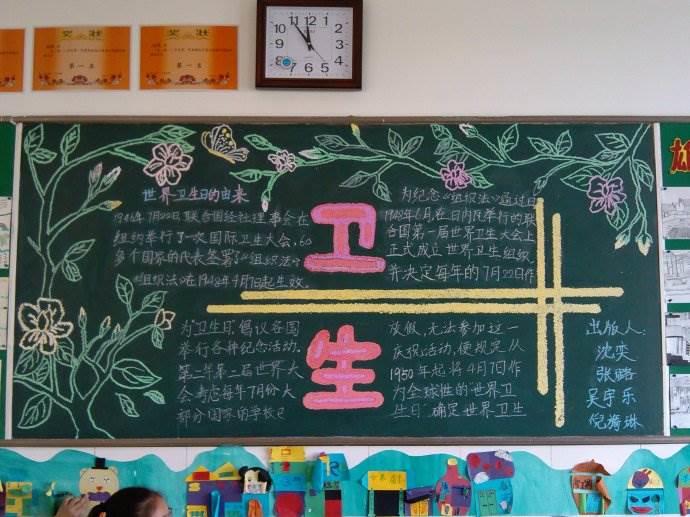 奖状
第一名
奖状
第一名
卫生
世界卫生日的由来
1946年7月22日联合国经社理事会在
纽约举行了一次国际卫生大会,60
多个国家的代表签署了《组织法》
《组织法》在1948年4月7日起生效。
为纪念《组织法》通过日
1948年6月在日内瓦举行的联
合国第一届世界卫生大会上
正式成立世界卫生组织
并决定每年的7月22日作
为"卫生日"倡议各国
举行各种纪念活动.
第二年第二届世界大
会考虑每年7月份大
部分国家的学校已
放假,无法参加这一
庆祝活动,便规定从
1950年起将4月7日作
为全球性的"世界卫
生日"确定世界卫生
出版人:
沈奕
张璐
吴宇乐